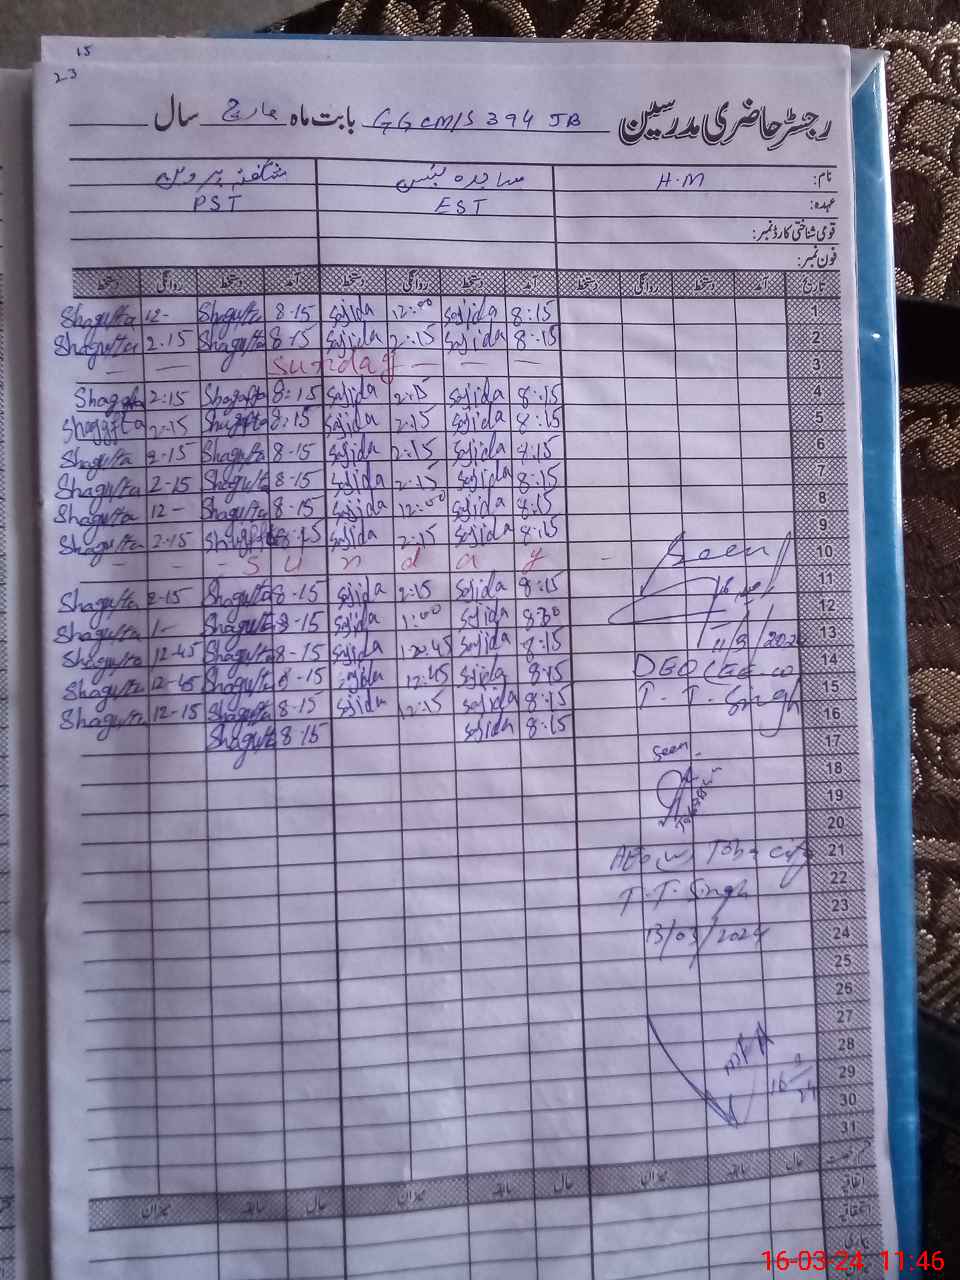 15
23
رجسٹر حاضری مدرسین GGCM/S 394 JB بابت ماہ مارچ سال
نام: H.M ساجدہ شگفتہ پروین
عہدہ: EST PST
قومی شناختی کارڈ نمبر:
فون نمبر:
تاریخ آمد دستخط روانگی دستخط آمد دستخط روانگی دستخط آمد دستخط روانگی دستخط
Shagufta 12- Shagufta 8-15 Sajida 12:00 Sajida 8:15 1
Shagufta 2.15 Shagufta 8-15 Sajida 2:15 Sajida 8:15 2
— — Sunday — — — 3
Shagufta 2:15 Shagufta 8:15 Sajida 2:15 Sajida 8:15 4
Shagufta 2-15 Shagufta 8:15 Sajida 2:15 Sajida 8:15 5
Shagufta 2-15 Shagufta 8-15 Sajida 2:15 Sajida 8:15 6
Shagufta 2-15 Shagufta 8-15 Sajida 2:15 Sajida 8:15 7
Shagufta 12- Shagufta 8-15 Sajida 12:00 Sajida 8:15 8
Shagufta 2-15 Shagufta 8:15 Sajida 2:15 Sajida 8:15 9
- - - S u n d a y - 10
Shagufta 2-15 Shagufta 8-15 Sajida 2:15 Sajida 8:15 11
Shagufta 1- Shagufta 8-15 Sajida 1:00 Sajida 8:30 12
Shagufta 12-45 Shagufta 8-15 Sajida Sajida 8:15 13
Shagufta 12-45 Shagufta 8-15 Sajida 12:45 Sajida 8:15 14
Shagufta 12-15 Shagufta 8-15 Sajida 12:15 Sajida 8:15 15
Shagufta 8-15 Sajida 8:15 16
17
18
19
20
21
22
23
24
25
26
27
28
29
30
31
Seen
DEO
T. T. Singh
Seen
AEO (W) Toba City
T.T. Singh
13/03/2024
16/3/24
حال سابقہ میزان حال سابقہ میزان حال سابقہ میزان
اتفاقیہ
16-03-24 11:46